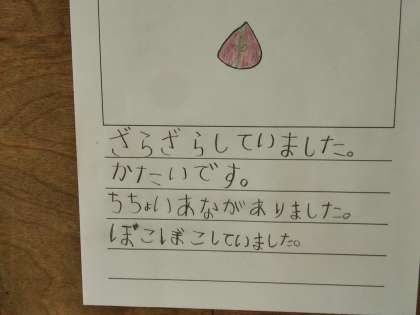 ざらざらしていました。
かたいです。
ちちょいあながありました。
ぼこぼこしていました。